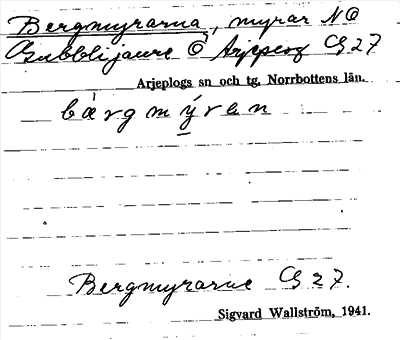 Bergmyrarna, myrar NO
Gubblijaure Ö Arjeplog G 27
Arjeplogs sn och tg, Norrbottens län.
bärgmýren
Bergmyrarne G 27.
Sigvard Wallström, 1941.